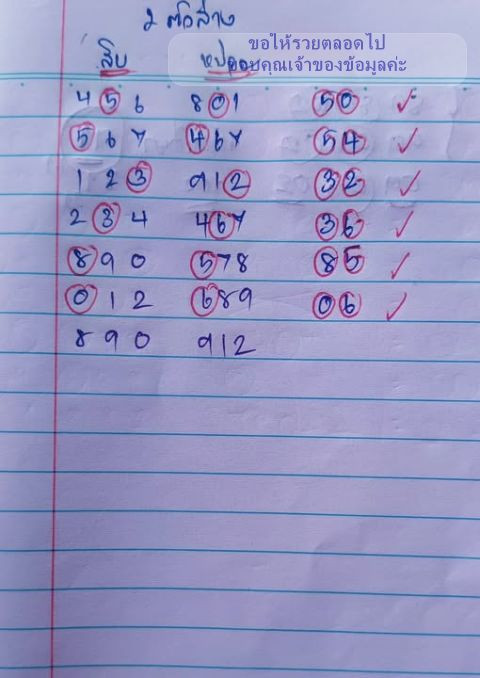 2 ตัวล่าง
ขอให้รวยตลอดไป
ขอบคุณเจ้าของข้อมูลค่ะ
สิบ หน่วย
4 5 6 801 50 ✓
5 6 7 467 54 ✓
1 2 3 912 32 ✓
2 3 4 467 36 ✓
8 9 0 578 85 ✓
0 1 2 689 06 ✓
8 9 0 912